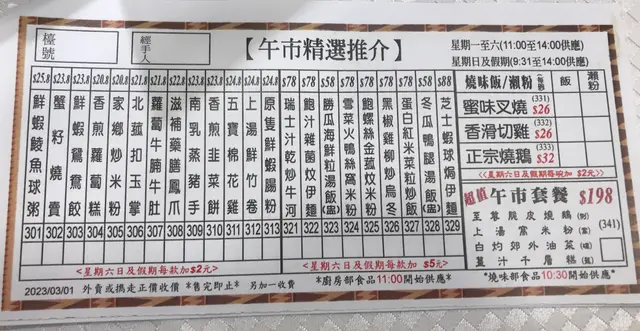 檯號
經手人
【午市精選推介】
星期一至六(11:00至14:00供應)
星期日及假期(9:31至14:00供應)
$25.8 鮮蝦鯪魚球粥 301
$25.8 蟹籽燒賣 302
$25.8 鮮蝦鴛鴦餃 303
$20.8 香煎蘿蔔糕 304
$20.8 家鄉炒米粉 305
$21.8 北菰扣玉掌 306
$21.8 蘿蔔牛腩牛肚 307
$22.8 滋補藥膳鳳爪 308
$22.8 南乳蒸豬手 309
$24.8 香煎韭菜餅 310
$24.8 五寶棉花雞 311
$24.8 上湯鮮竹卷 312
$24.8 原隻鮮蝦腸粉 313
$78 瑞士汁乾炒牛河 321
$78 鮑汁雜菌炆伊麵 322
$58 勝瓜海鮮粒湯飯(盅) 323
$78 雪菜火鴨絲窩米 324
$78 鮑螺絲金菰炆米粉 325
$78 黑椒雞柳炒烏冬 326
$78 蛋白紅米菜粒炒飯 327
$58 冬瓜鴨腿湯飯(盅) 328
$88 芝士蝦球焗伊麵 329
<星期六日及假期每款加$2元>
<星期六日及假期每款加$5元>
燒味飯/瀨粉(每碗)
飯
瀨粉
蜜味叉燒 (331) $26
香滑切雞 (332) $26
正宗燒鵝 (333) $33
<星期六日及假期每碗加$2元>
超值午市套餐 $198
至尊脆皮燒鵝(例)
上湯窩米粉(窩)
白灼郊外油菜(碟)
薑汁千層糕(籠)
(341)
2023/03/01 外賣或攜走正價收價 *售完即止* 另加一收費
*廚房部食品11:00開始供應*
*燒味部食品10:30開始供應*